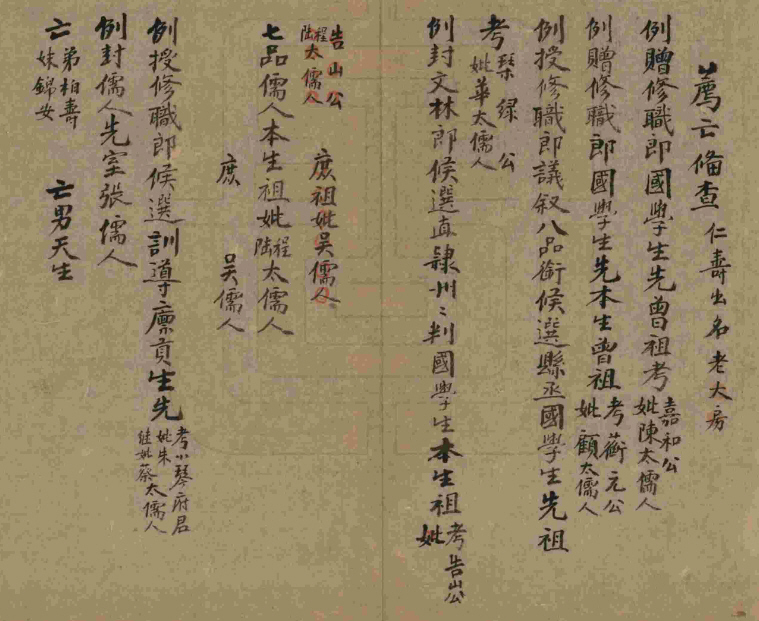 薦亡備查 仁壽出名老大房
例贈修職郎國學生先曾祖考嘉和公
妣陳太儒人
例贈修職郎國學生先本生曾祖考蘅元公
妣顧太儒人
例授修職郎議叙八品銜候選縣丞國學生先祖
考琹緑公
妣華太儒人
例封文林郎候選直隸州〻判國學生本生祖考告山公
妣
告山公
程
陆太儒人
庶祖妣吳儒人
七品儒人本生祖妣程
陆太儒人
庶 吳儒人
例授修職郎候選訓導廩貢生先考小琴府君
妣朱
継妣蔡太儒人
例封儒人先室張儒人
亡弟柏壽
妹錦女
亡男天生